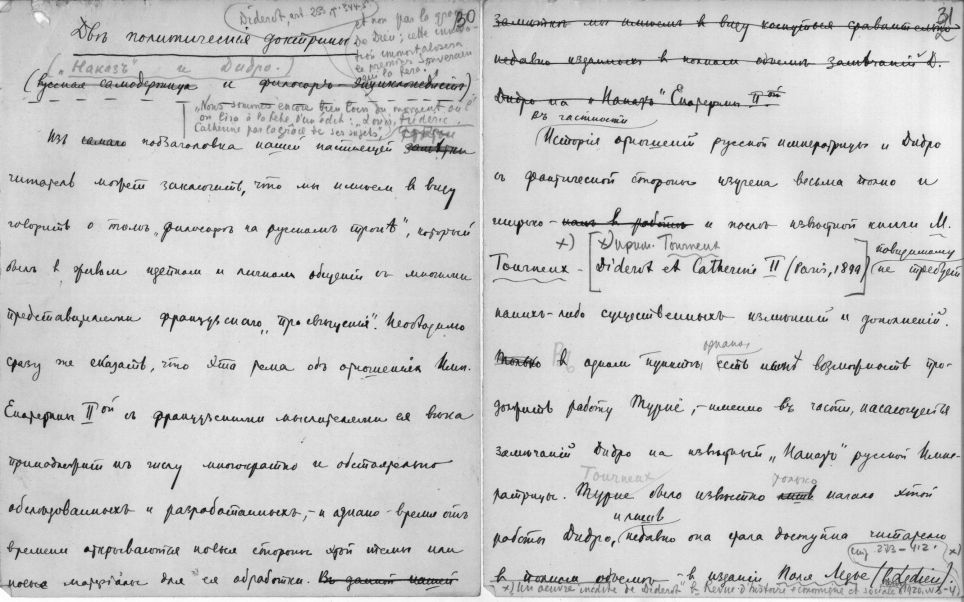 30
Diderot, art. 
Двѣ политическія доктрины
et non par la grâce
de Dieu; cette
immortalisera
le premier souverain
qui la fera."
("Наказъ" и Дидро.)
(Русская самодержица и философъ-энциклопедистъ)
"Nous sommes encore bien loin du moment où
on lira à la tête d'un édit: "Louis, Frédéric,
Catherine par la grâce de ses sujets",
Изъ самаго подзаголовка нашей настоящей замѣтки
читатель можетъ заключить, что мы имѣемъ въ виду
говорить о томъ "философѣ на русскомъ тронѣ", который
былъ въ живомъ идейномъ и личномъ общеніи съ многими
представителями французскаго "просвѣщенія". Необходимо
сразу же сказать, что эта тема объ отношеніяхъ Имп.
Екатерины IIой съ французскими мыслителями ея вѣка
принадлежитъ къ числу многократно и обстоятельно
обслѣдованныхъ и разработанныхъ,-и однако-время отъ
времени открываются новыя стороны этой темы или
новые матеріалы для ея обработки. Въ данной нашей
31
замѣткѣ мы имѣемъ въ виду коснуться сравнительно
недавно изданныхъ въ полномъ объемѣ Замѣчаній Д.
Дидро на "Наказъ" Екатерины IIой
въ частности
Исторія отношеній русской императрицы и Дидро
съ фактической стороны изучена весьма полно и
широко - и послѣ извѣстной книги М.
x) x)
Tourneux
Tourneux - Diderot et Catherine II (Paris, 1899) повидимому не требуетъ
какихъ-либо существенныхъ измѣненій и дополненій.
однако,
Только въ одномъ пунктѣ есть возможность про-
должить работу Турнё,-именно въ части, касающейся
замѣчаній Дидро на извѣстный "Наказъ" русской Импе-
Tourneux только
ратрицы. Турнё было извѣстно лишь начало этой
и лишь
работы Дидро, недавно она стала доступна читателю
273-412. x)
въ полномъ объемѣ - въ изданіи Поля Ледьё (P. Ledieu).
x) "Un oeuvre inédite de Diderot" въ Revue d'histoire économique et sociale (1920,